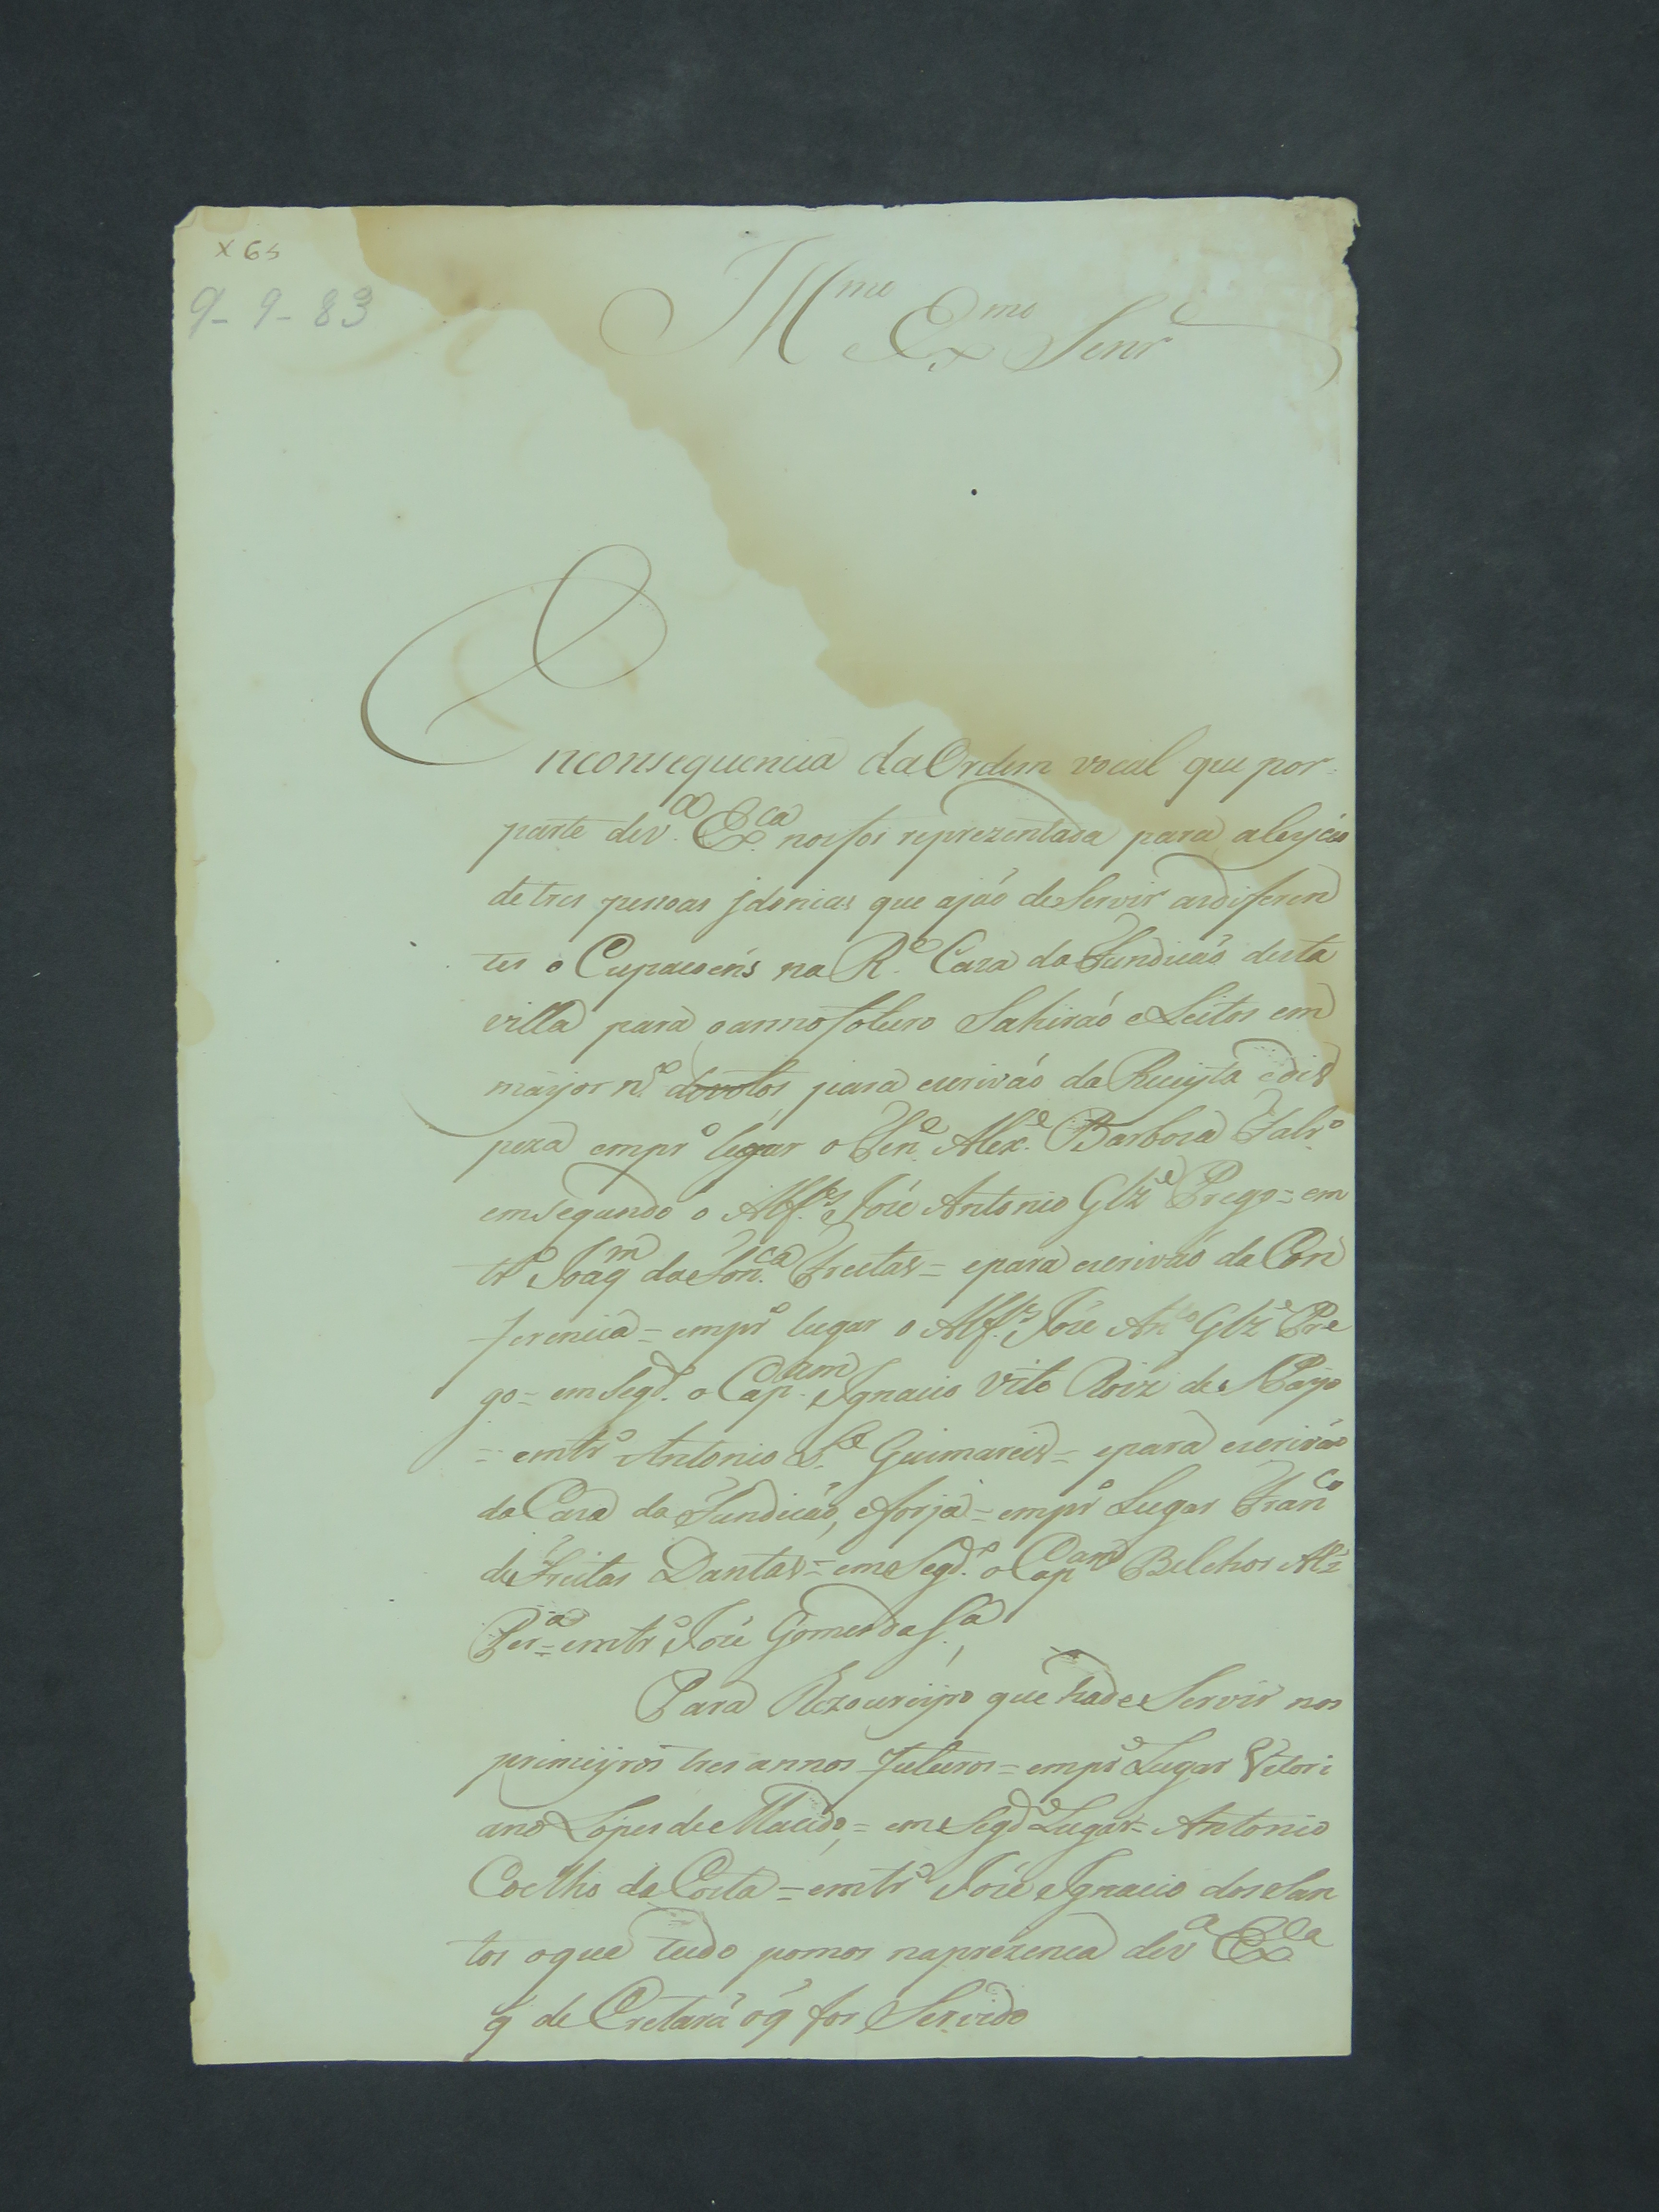 X 65
9-9-83
Illmo e Exmo Senr
Enconsequencia da Ordem vocal que por
parte de va. Exca. nos foi reprezentada para aleyção
de tres pessoas jdonias que ajaó de Servir as diferen
tes oCupacoéns na Rl. Caza da Fundicaó desta
villa para o anno foturo Sahiraó eLeitos em
mayor no. de votos para escrivaó da Receyta e dis
peza em pro lugar o Tene. Alexe. Barboza
em segundo o Alfes. José Antonio Glz e Prego = em
tro Joaqm da Fonca. Freitas = e para escrivaó da Con
ferencia = em pro lugar o Alfes. José Anto Glz e Pre
go = em Segdo. o Capam. Ignacio Vito Roiz de
= em tro Antonio Guimareis = e para escrivaó
da Caza da Fundicaó, e forja = em pro Lugar Franco
de Freitas Dantas = em Segdo. o Capam Belchor Alz
Pera = em tro José Gomes da Sa.
Para Tezoureyro que hade Servir nos
primeyros tres annos Futuros = em pro Lugar Vitori
ano Lopes de Macedo, = em Segdo Lugar = Antonio
Coelho da Costa = em tro José Ignacio dos San
tos o que tudo pomos na prezenca de va Exca
q de Cretará o q for Servido